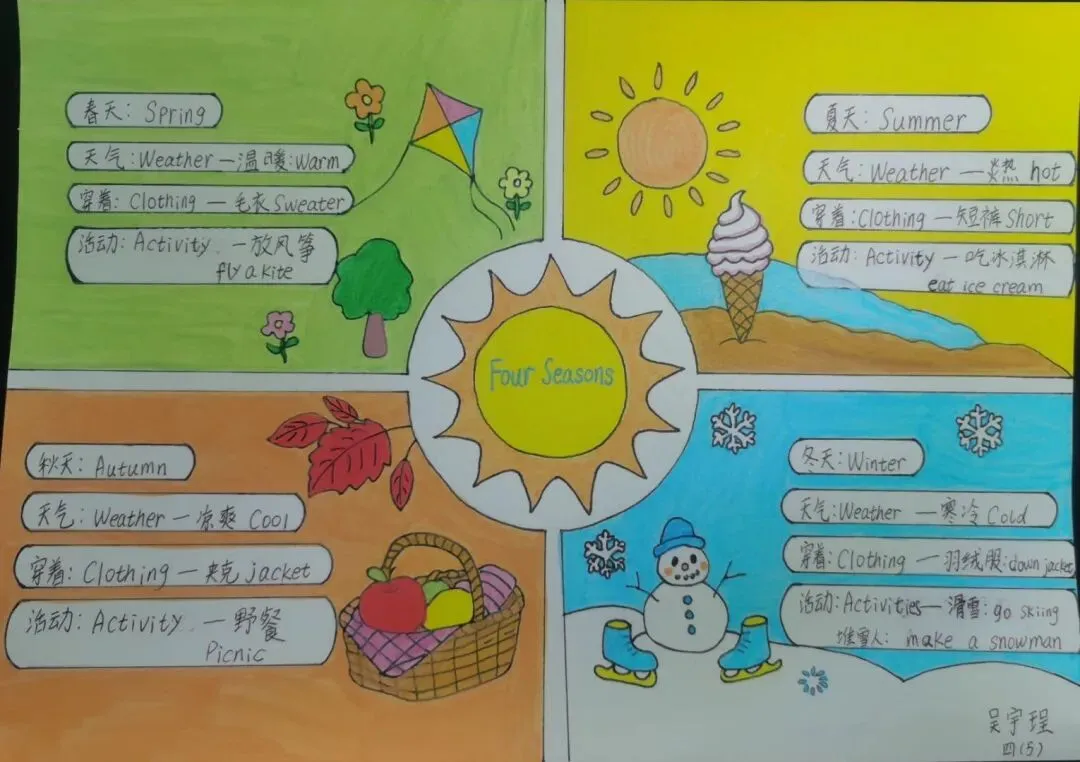 春天: Spring
天气: Weather — 温暖: Warm
穿着: Clothing — 毛衣 Sweater
活动: Activity. — 放风筝
fly a kite
夏天: Summer
天气: Weather — 炎热 hot
穿着: Clothing — 短裤 Short
活动: Activity — 吃冰淇淋
eat ice cream
Four Seasons
秋天: Autumn
天气: Weather — 凉爽 Cool
穿着: Clothing — 夹克 jacket
活动: Activity. — 野餐
Picnic
冬天: Winter
天气: Weather — 寒冷 Cold
穿着: Clothing — 羽绒服: down jacket
活动: Activities — 滑雪: go skiing
堆雪人: make a snowman
吴宇珵
四(5)